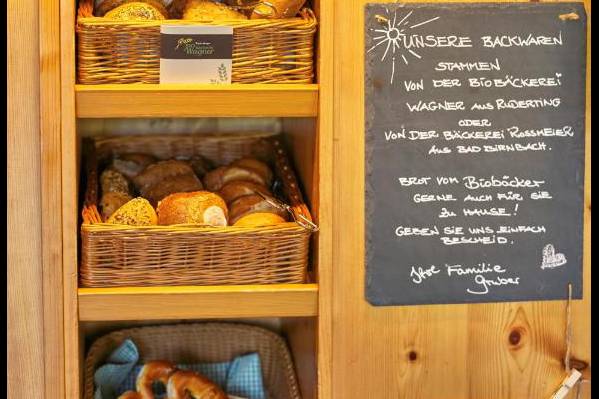 BIO
Wagner
UNSERE BACKWAREN
STAMMEN
VON DER BIOBÄCKEREI
WAGNER AUS RUDERTING
ODER
VON DER BÄCKEREI ROSSMEIER
AUS BAD BIRNBACH.
BROT VOM BIOBÄCKER
GERNE AUCH FÜR SIE
ZU HAUSE!
GEBEN SIE UNS EINFACH
BESCHEID.
Familie
Gruber